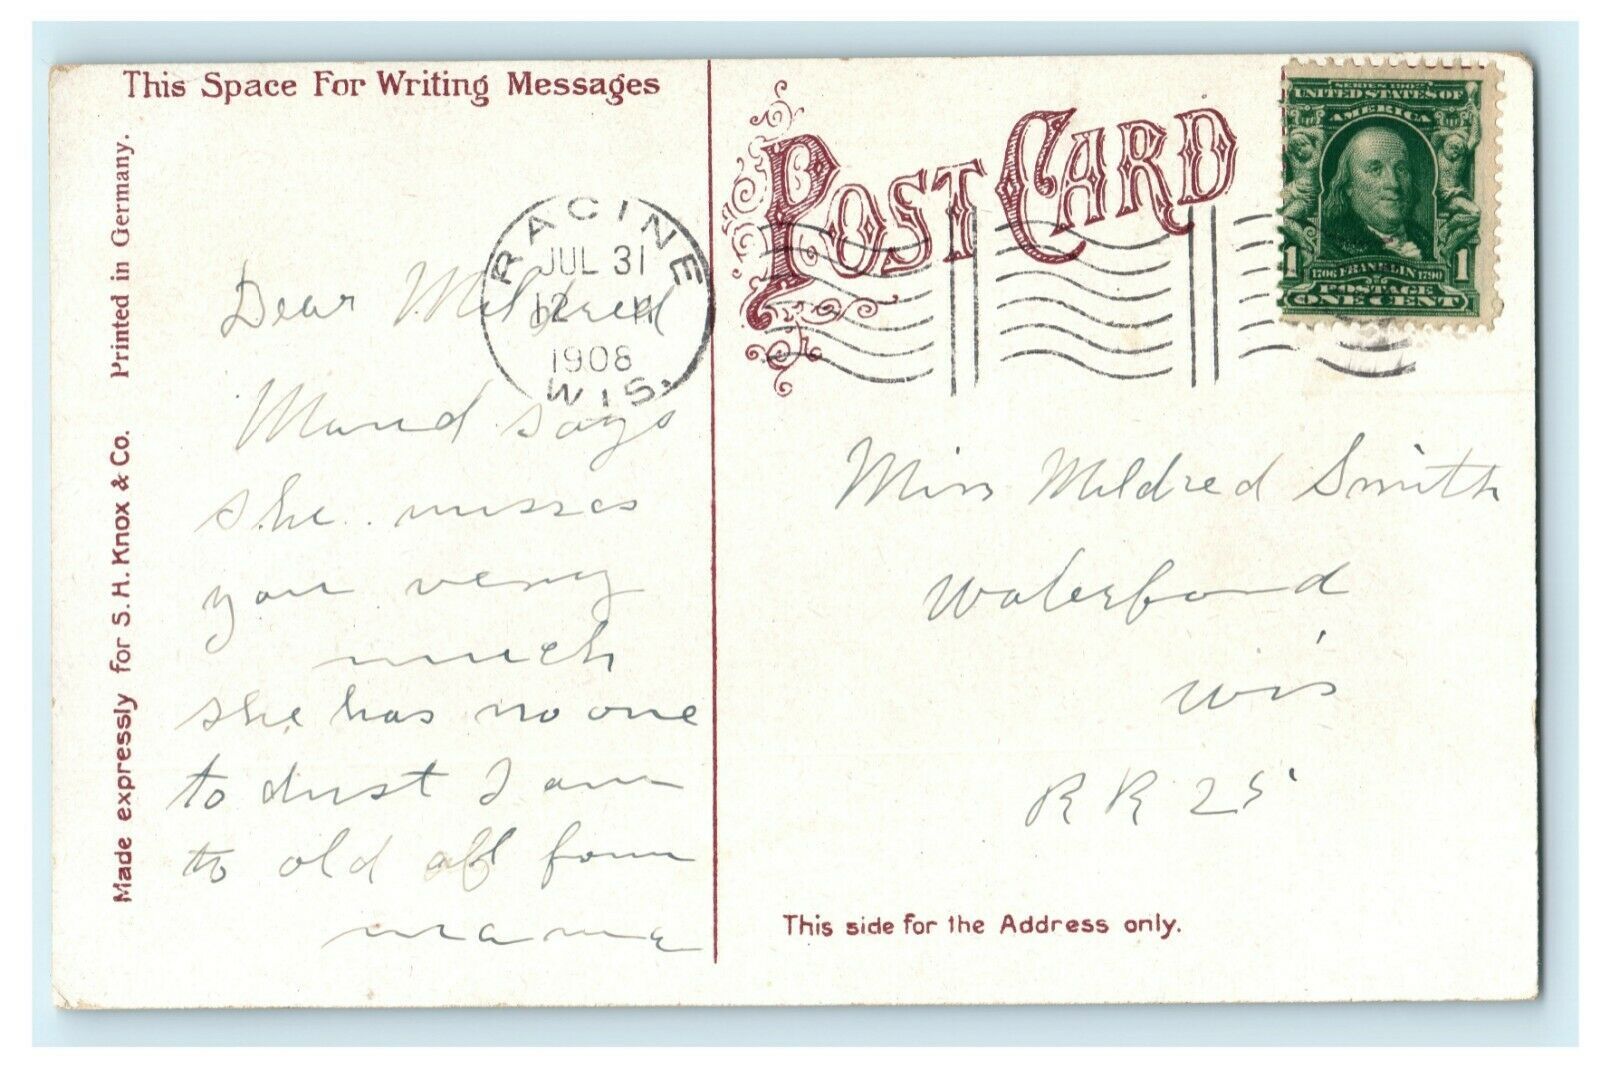 This Space For Writing Messages
Printed in Germany.
Made expressly for S. H. Knox & Co.
Dear Mildred
Maud says
she misses
you very
much
she has no one
to dust I am
to old
mama
RACINE
JUL 31
12
1908
WIS.
POST CARD
SERIES 1902
UNITED STATES OF
AMERICA
1 1706 FRANKLIN 1790 1
POSTAGE
ONE CENT
Miss Mildred Smith
Waterford
Wis
R R 25
This side for the Address only.